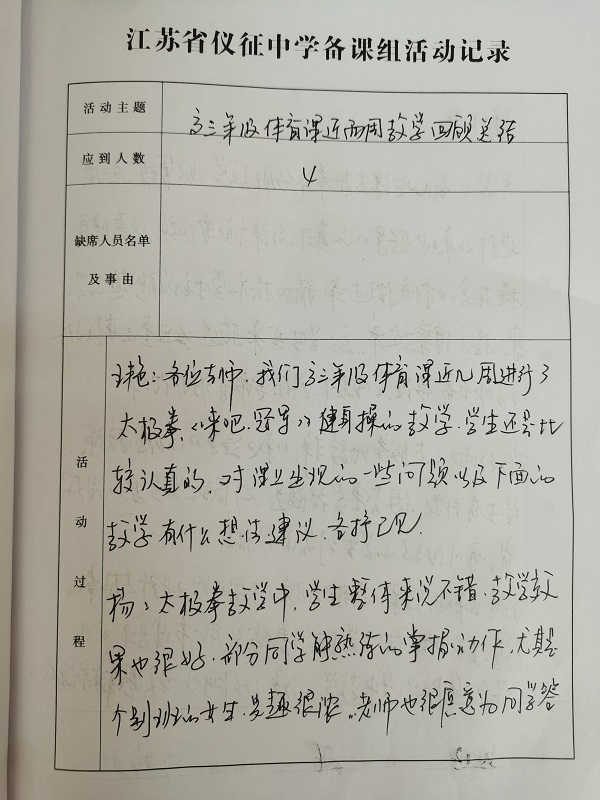 江苏省仪征中学备课组活动记录
活动主题
高三年级体育课近两周教学回顾总结
应到人数
4
缺席人员名单
及事由
活动过程
各位老师,我们高三年级体育课近几周进行了
太极拳、《来吧,冠军》健身操的教学,学生还是比
较认真的,对课上出现的一些问题以及下面的
教学有什么想法建议,各抒己见.
杨:太极拳教学中,学生整体来说不错,教学效
果也很好,部分同学能熟练的掌握动作,尤其是
个别班的女生,兴趣很浓,老师也很愿意为同学答